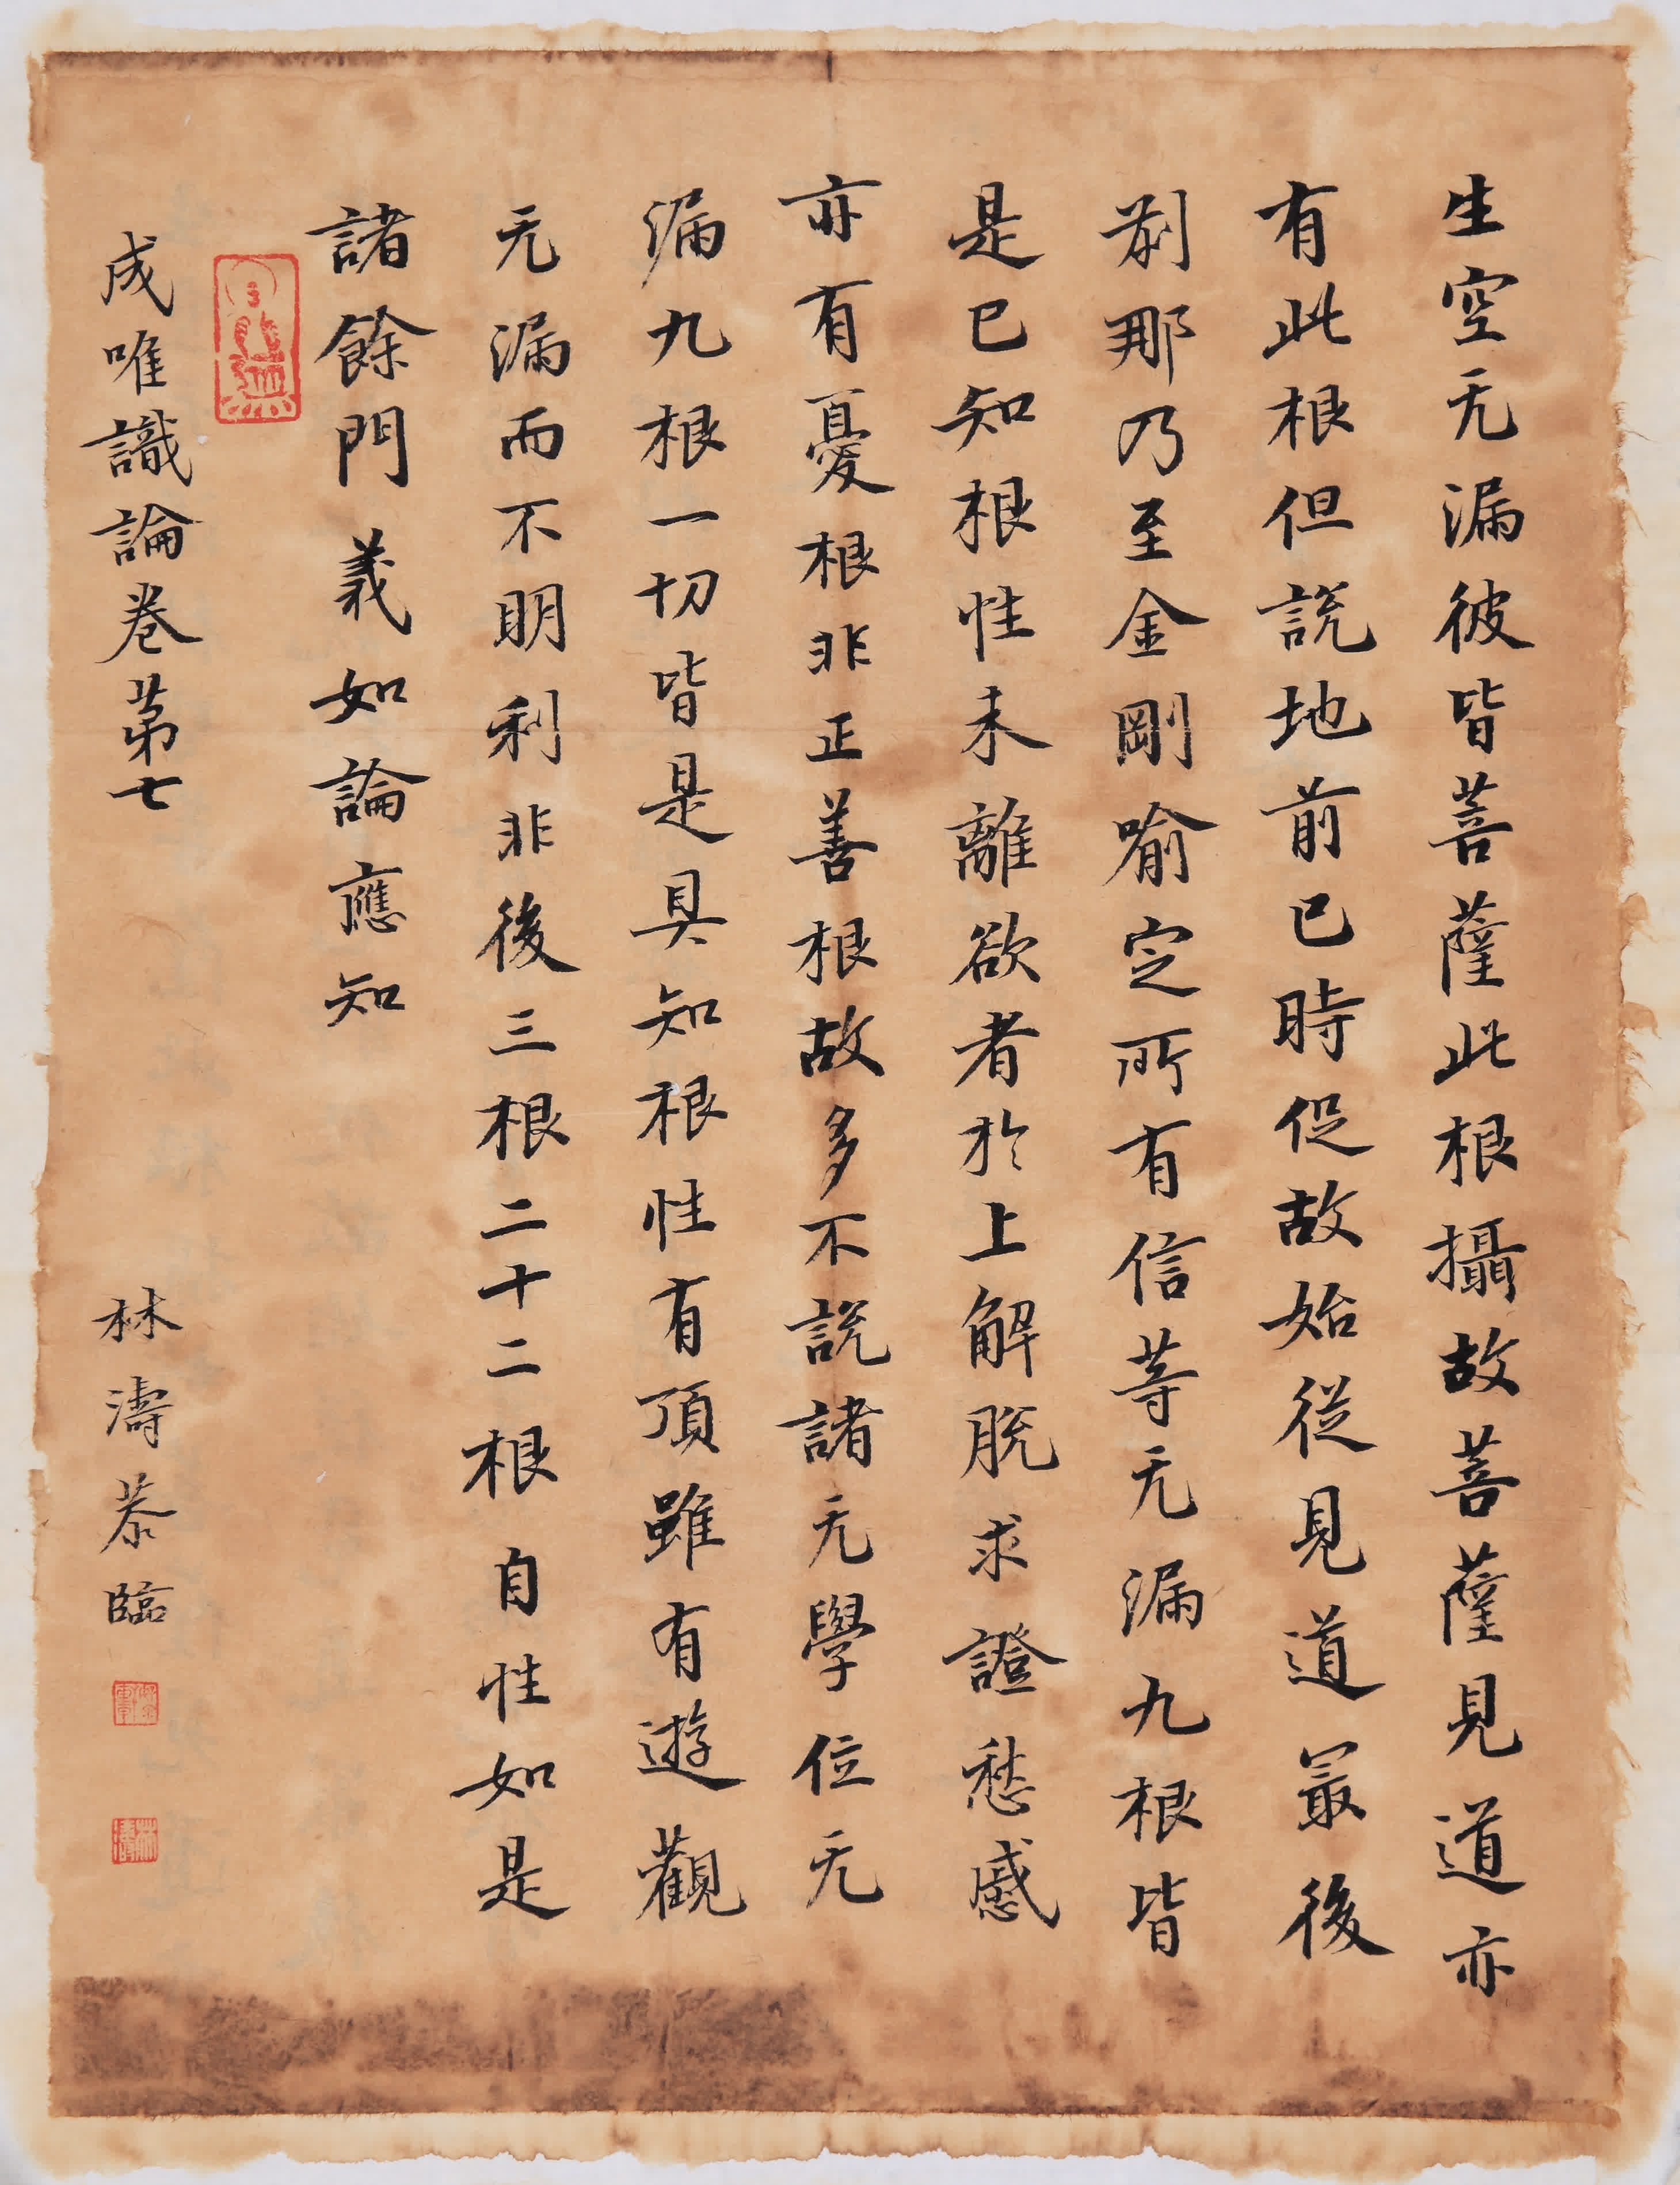 生空无漏彼皆菩薩此根攝故菩薩見道亦
有此根但說地前已時促故始從見道最後
剎那乃至金剛喻定所有信等无漏九根皆
是已知根性未離欲者於上解脫求證愁慼
亦有憂根非正善根故多不說諸无學位无
漏九根一切皆是具知根性有頂雖有遊觀
无漏而不明利非後三根二十二根自性如是
諸餘門義如論應知
成唯識論卷第七
林濤恭臨
林濤